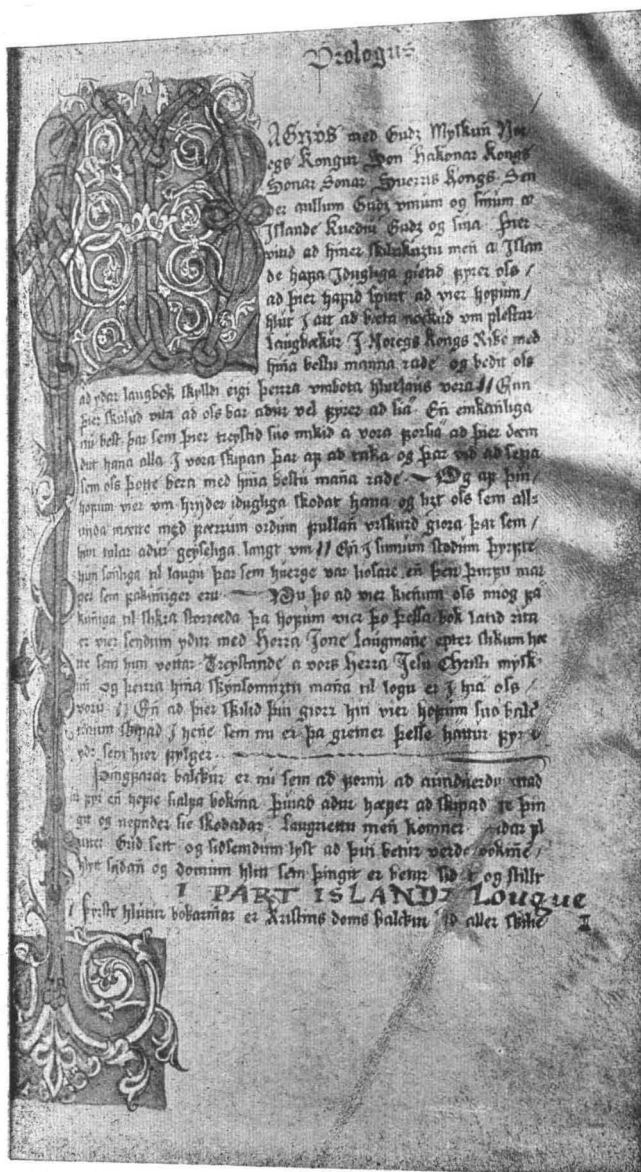 Prologus
MAGNVS med Gudz Myskun Nor-
egs Kongur Son Hakonar Kongs
Sonar Sonar Suerris Kongs Sen
der aullum Gudz vinum og sinum a
Jslande Kuediu Gudz og sina. Þier
vitud ad hiner skilrikuztu men a Jslan
de hafa Jdugliga gietid fyrer oss /
ad þier hafid spurt ad vier hofum /
hlut J att ad bæta nockud vm flestar
laugbækur J Noregs Kongs Rike med
hina bestu manna rade og bedit oss
ad ydar laugbok skylldi eigi þeirra vmbota hlutlaus vera // Enn
þier skulud vita ad oss bar adur vel fyrer ad sia En einkanliga
nu best þar sem þier treystid suo mikid a vora forsia ad þier dæm
dut hana alla J vora skipan þar af ad taka og þar vid ad setia
sem oss þætte betra med hina bestu mana rade Og af þui /
hofum vier vm hrijder idugliga skodat hana og lizt oss sem all-
uida mætte med færrum ordum fullan vrskurd giora þat sem /
hun talar adur geyseliga langt vm // En J sumum stodum þyrfte
hun saliga til laugu þar sem huerge var liosare en þen þurfu mar
ger sem fakunniger eru Nu þo ad vier kienum oss miog fa
kuniga til slikra storræda þa hofum vier þo þessa bok latid rita
er vier sendum ydur med Herra Jone Laugmane epter slikum hæ
tte sem hun vottar Treystande a vors Herra Jesu Christi mysk-
un og þeirra hina skynsomuztu mana til logu er J hia oss /
voru // En ad þier skilid þui giorr huad vier hofum suo balk
raum skipad J hene sem nu er þa greiner þesse hattur fyrer
ydr sem hier fylger
Þingfarar balckur er nu sem ad formi ad aunduerdu
fyr en hefie sialfa bokina Þuiad adur hæfer ad skipad se þin
git og nefnder sie skodadar Laugrettu men komner
Grid sett og sidsemdum lyst ad þui betur verde bokine /
hlytt sidan og domum hlitt sem þingit er betur sidat og stillt
I PART ISLANDZ Lougue
Fyrste hlutur bokarinnar er Kristins doms balckur ad aller skilie
II